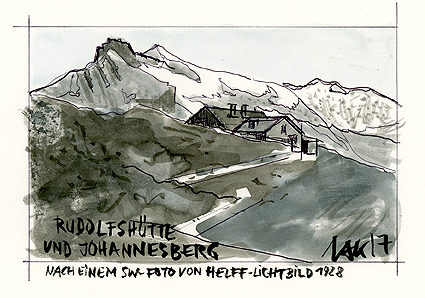 RUDOLFSHÜTTE
UND JOHANNESBERG
NACH EINEM SW-FOTO VON HELFF-LICHTBILD 1928